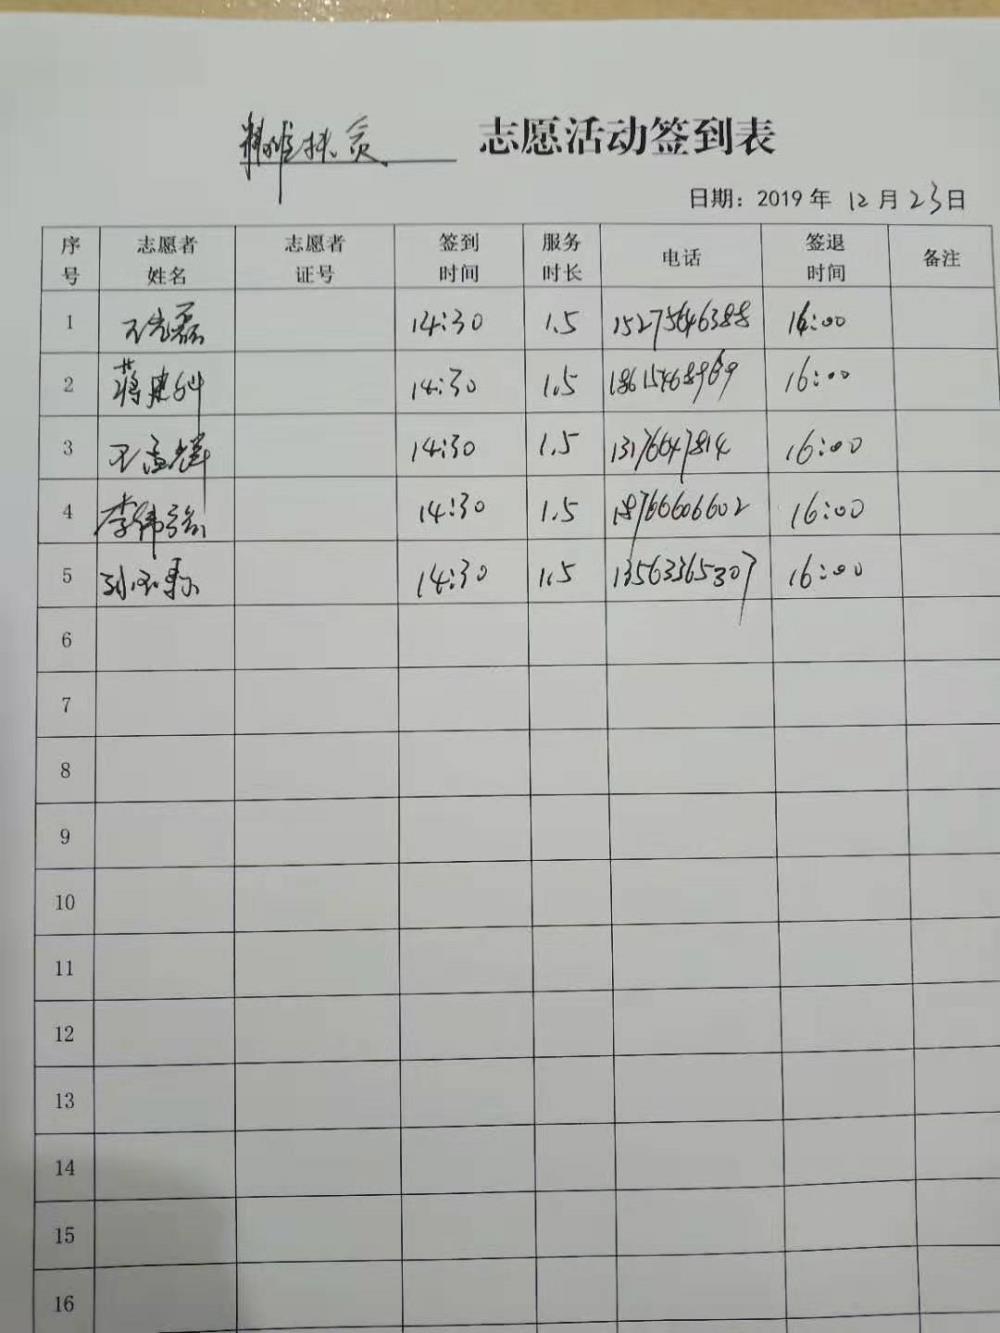 精准扶贫 志愿活动签到表
日期：2019年 12月 23日
序号 志愿者姓名 志愿者证号 签到时间 服务时长 电话 签退时间 备注
1 王克磊 14:30 1.5 15275646388 16:00
2 蒋建科 14:30 1.5 18615468969 16:00
3 王孟辉 14:30 1.5 13176647814 16:00
4 李伟 14:30 1.5 18766606602 16:00
5 14:30 1.5 13563365307 16:00
6
7
8
9
10
11
12
13
14
15
16